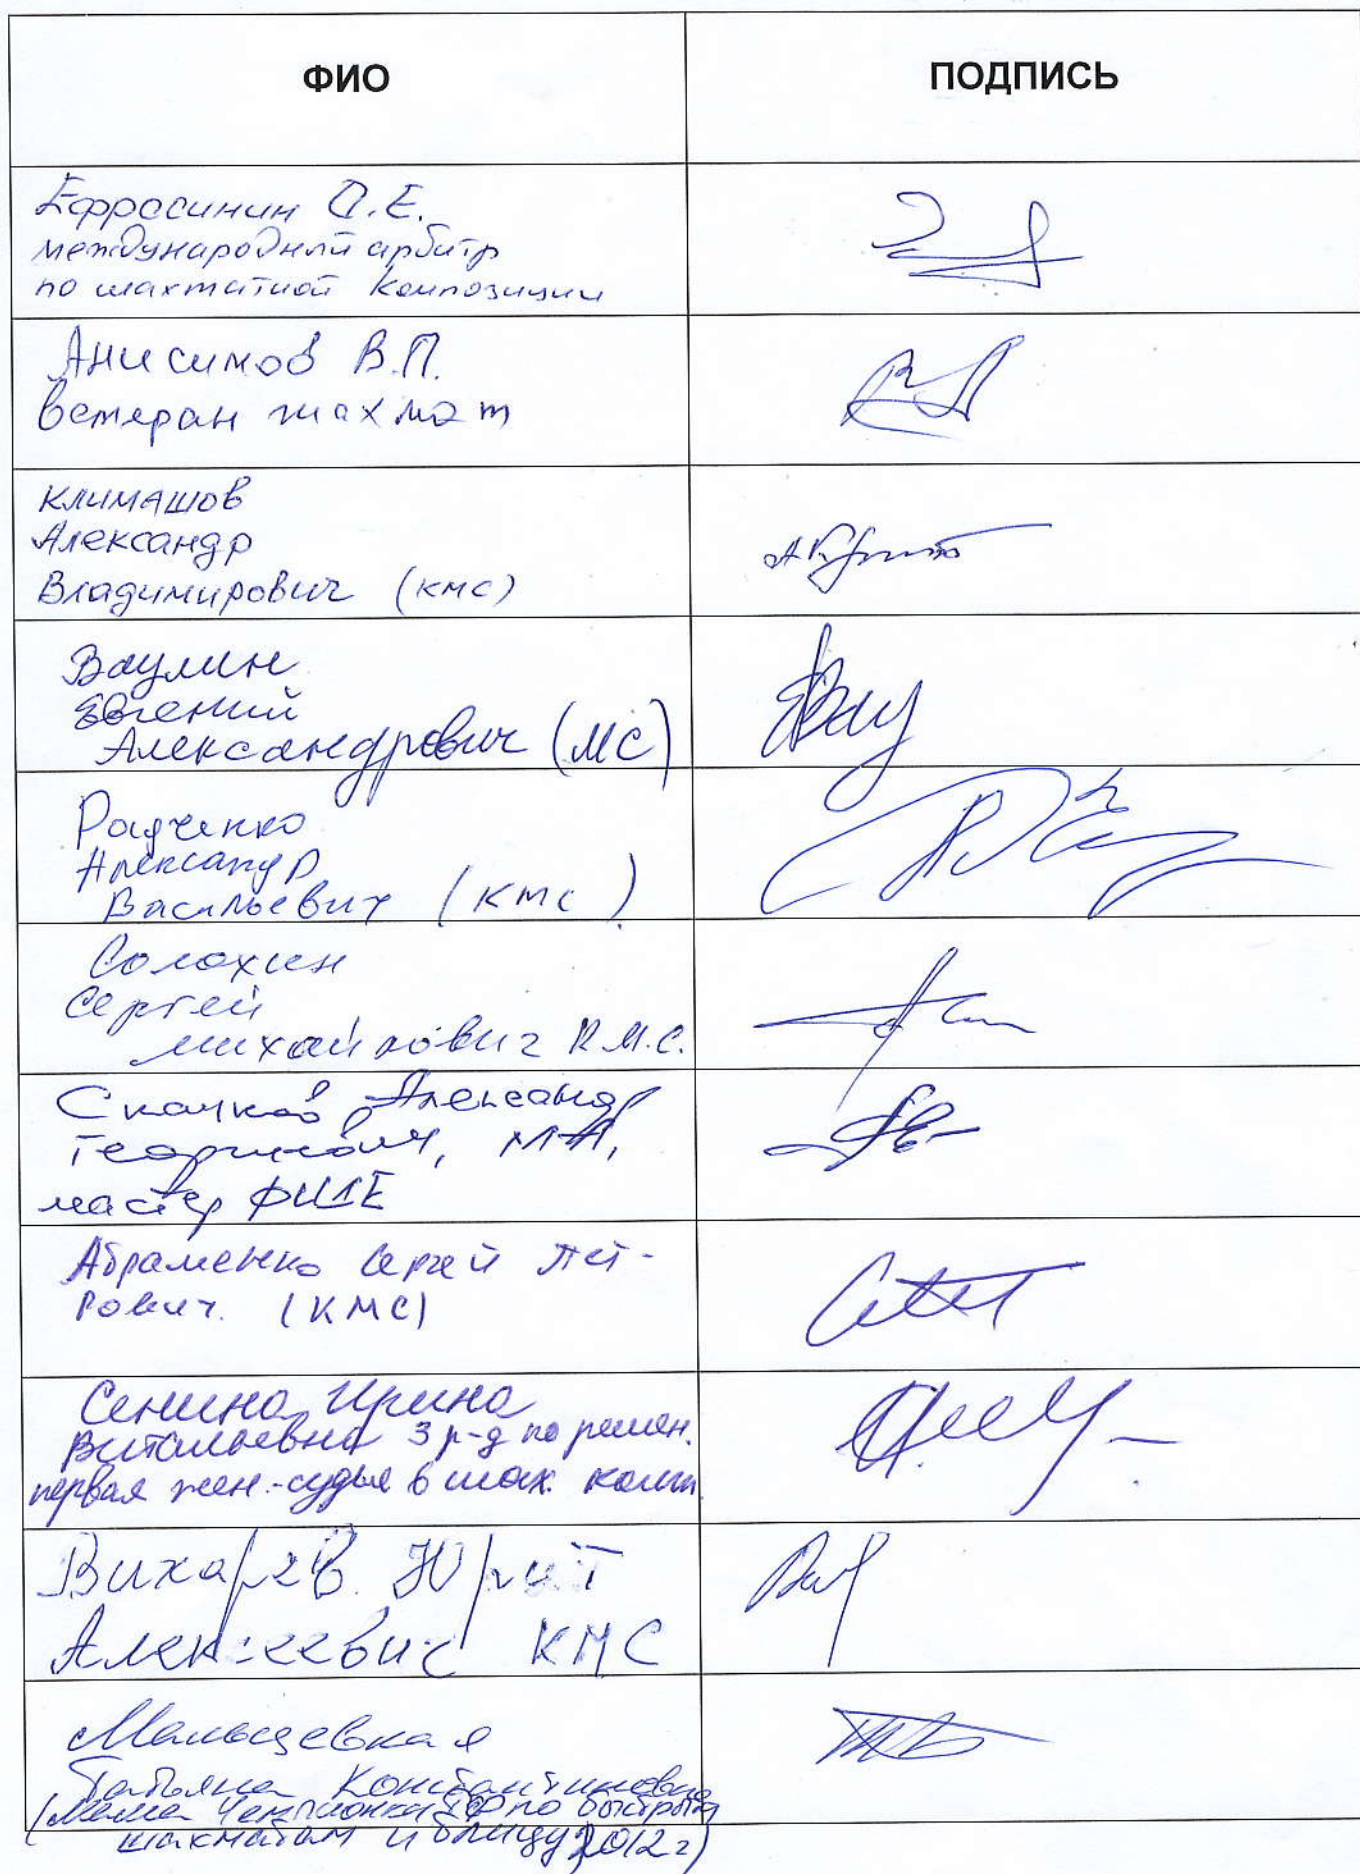 ФИО
ПОДПИСЬ
Ефросинин О.Е.
международный арбитр
по шахматной композиции
Анисимов В.П.
ветеран шахмат
Климашов
Александр
Владимирович (кмс)
Ваулин
Евгений
Александрович (МС)
Радченко
Александр
Васильевич (КМС)
Солохин
Сергей
Михайлович К.М.С.
Скачков Александр
Георгиевич, МА,
мастер ФИДЕ
Абраменко Сергей Пет-
рович. (КМС)
Сенина Ирина
Витальевна 3 р-д по решен.
первая жен.-судья в шах. комп.
Вихарев Юрий
Алексеевич КМС
Татьяна Константиновна
(Мама Чемпионка РФ по быстрым
шахматам и блицу 2012 г)